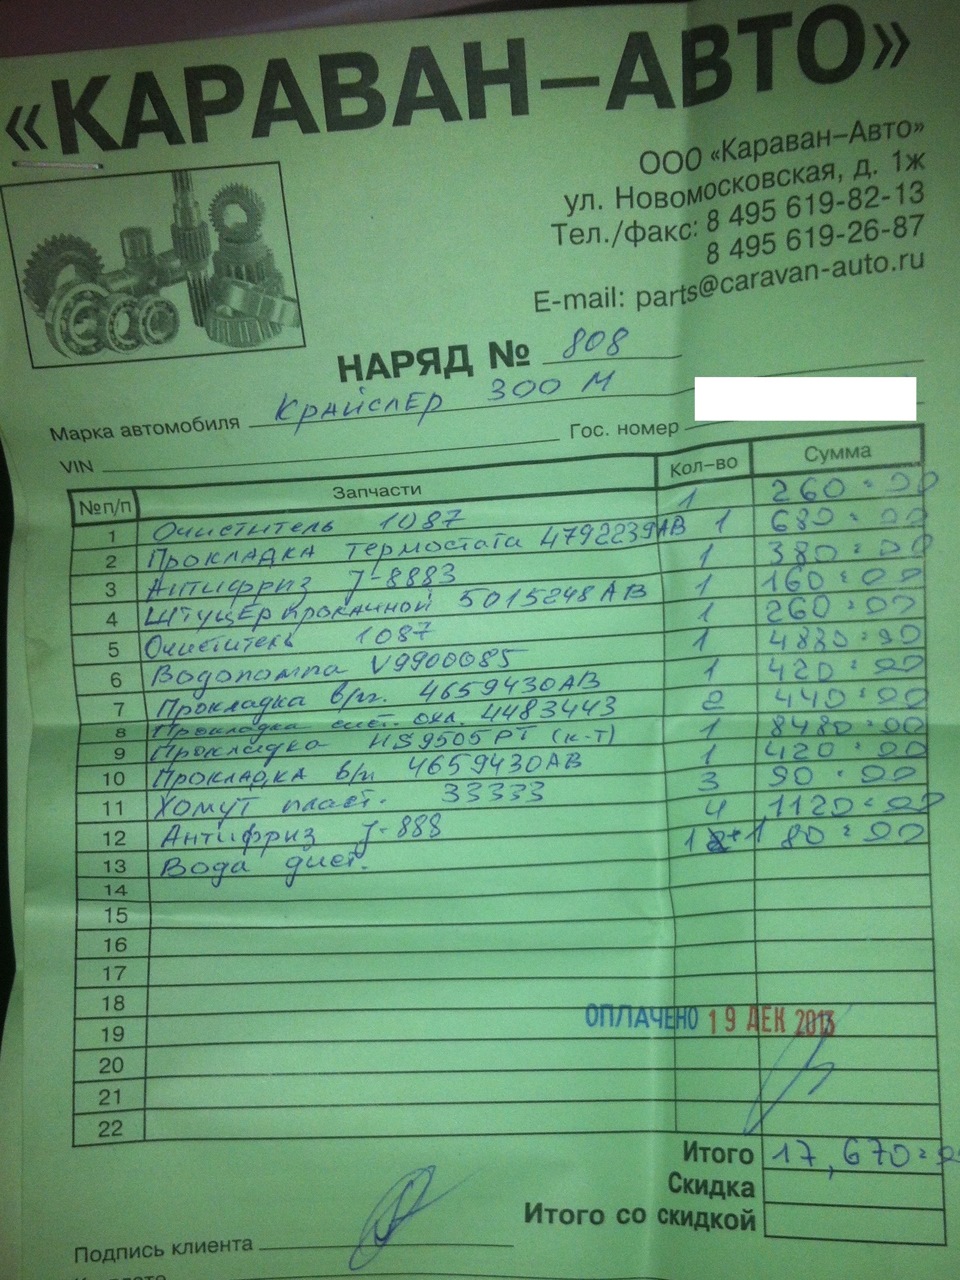 «КАРАВАН–АВТО»
ООО «Караван–Авто»
ул. Новомосковская, д. 1ж
Тел./факс: 8 495 619-82-13
8 495 619-26-87
E-mail: parts@caravan-auto.ru
НАРЯД № 808
Марка автомобиля Крайслер 300 М
VIN Гос. номер
№п/п Запчасти Кол–во Сумма
1 Очиститель 1087 1 260=00
2 Прокладка термостата 4792239АВ 1 680=00
3 Антифриз J-8883 1 380=00
4 Штуцер прокачной 5015248АВ 1 160=00
5 Очиститель 1087 1 260=00
6 Водопомпа V9900085 1 4880=00
7 Прокладка в/п. 4659430АВ 1 420=00
8 Прокладка сист. охл. 4483443 2 440=00
9 Прокладка HS9505PT (к-т) 1 8480=00
10 Прокладка в/п 4659430АВ 1 420=00
11 Хомут пласт. 33333 3 90=00
12 Антифриз J-888 4 1120=00
13 Вода дист. 1 80=00
14
15
16
17
18
19
ОПЛАЧЕНО 19 ДЕК 2013
20
21
22
Итого 17,670=00
Скидка
Итого со скидкой
Подпись клиента